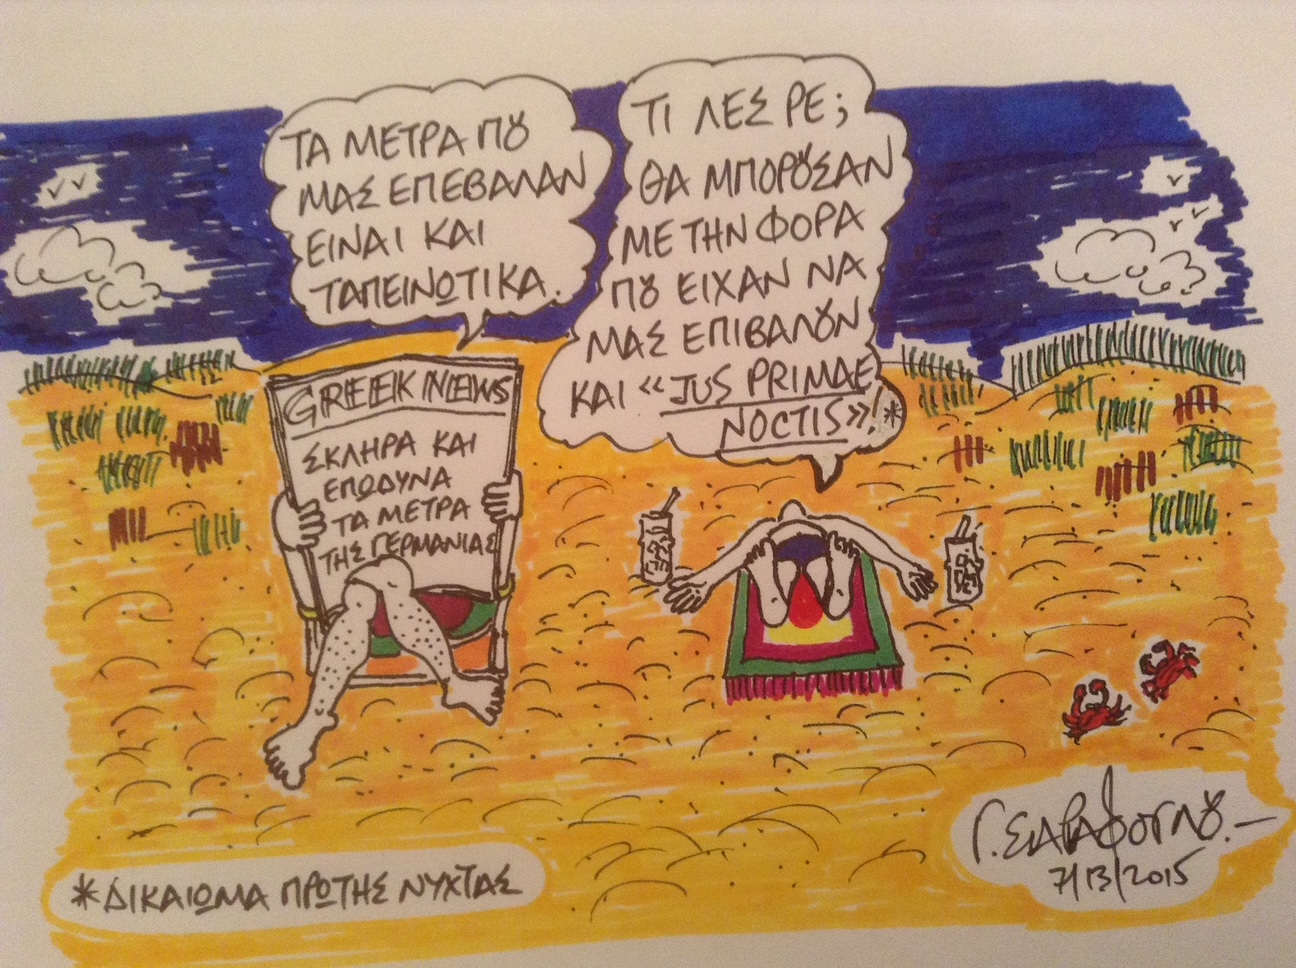 ΤΑ ΜΕΤΡΑ ΠȢ
ΜΑΣ ΕΠΕΒΑΛΑΝ
ΕΙΝΑΙ ΚΑΙ
ΤΑΠΕΙΝΩΤΙΚΑ.
ΤΙ ΛΕΣ ΡΕ;
ΘΑ ΜΠΟΡȢΣΑΝ
ΜΕ ΤΗΝ ΦΟΡΑ
ΠȢ ΕΙΧΑΝ ΝΑ
ΜΑΣ ΕΠΙΒΑΛȢΝ
ΚΑΙ «JUS PRIMAE
NOCTIS»!*
GREEK NEWS
ΣΚΛΗΡΑ ΚΑΙ
ΕΠΩΔΥΝΑ
ΤΑ ΜΕΤΡΑ
ΤΗΣ ΓΕΡΜΑΝΙΑΣ
*ΔΙΚΑΙΩΜΑ ΠΡΩΤΗΣ ΝΥΧΤΑΣ
Γ. ΣΑΡΑΦΟΓΛȢ.—
7/13/2015